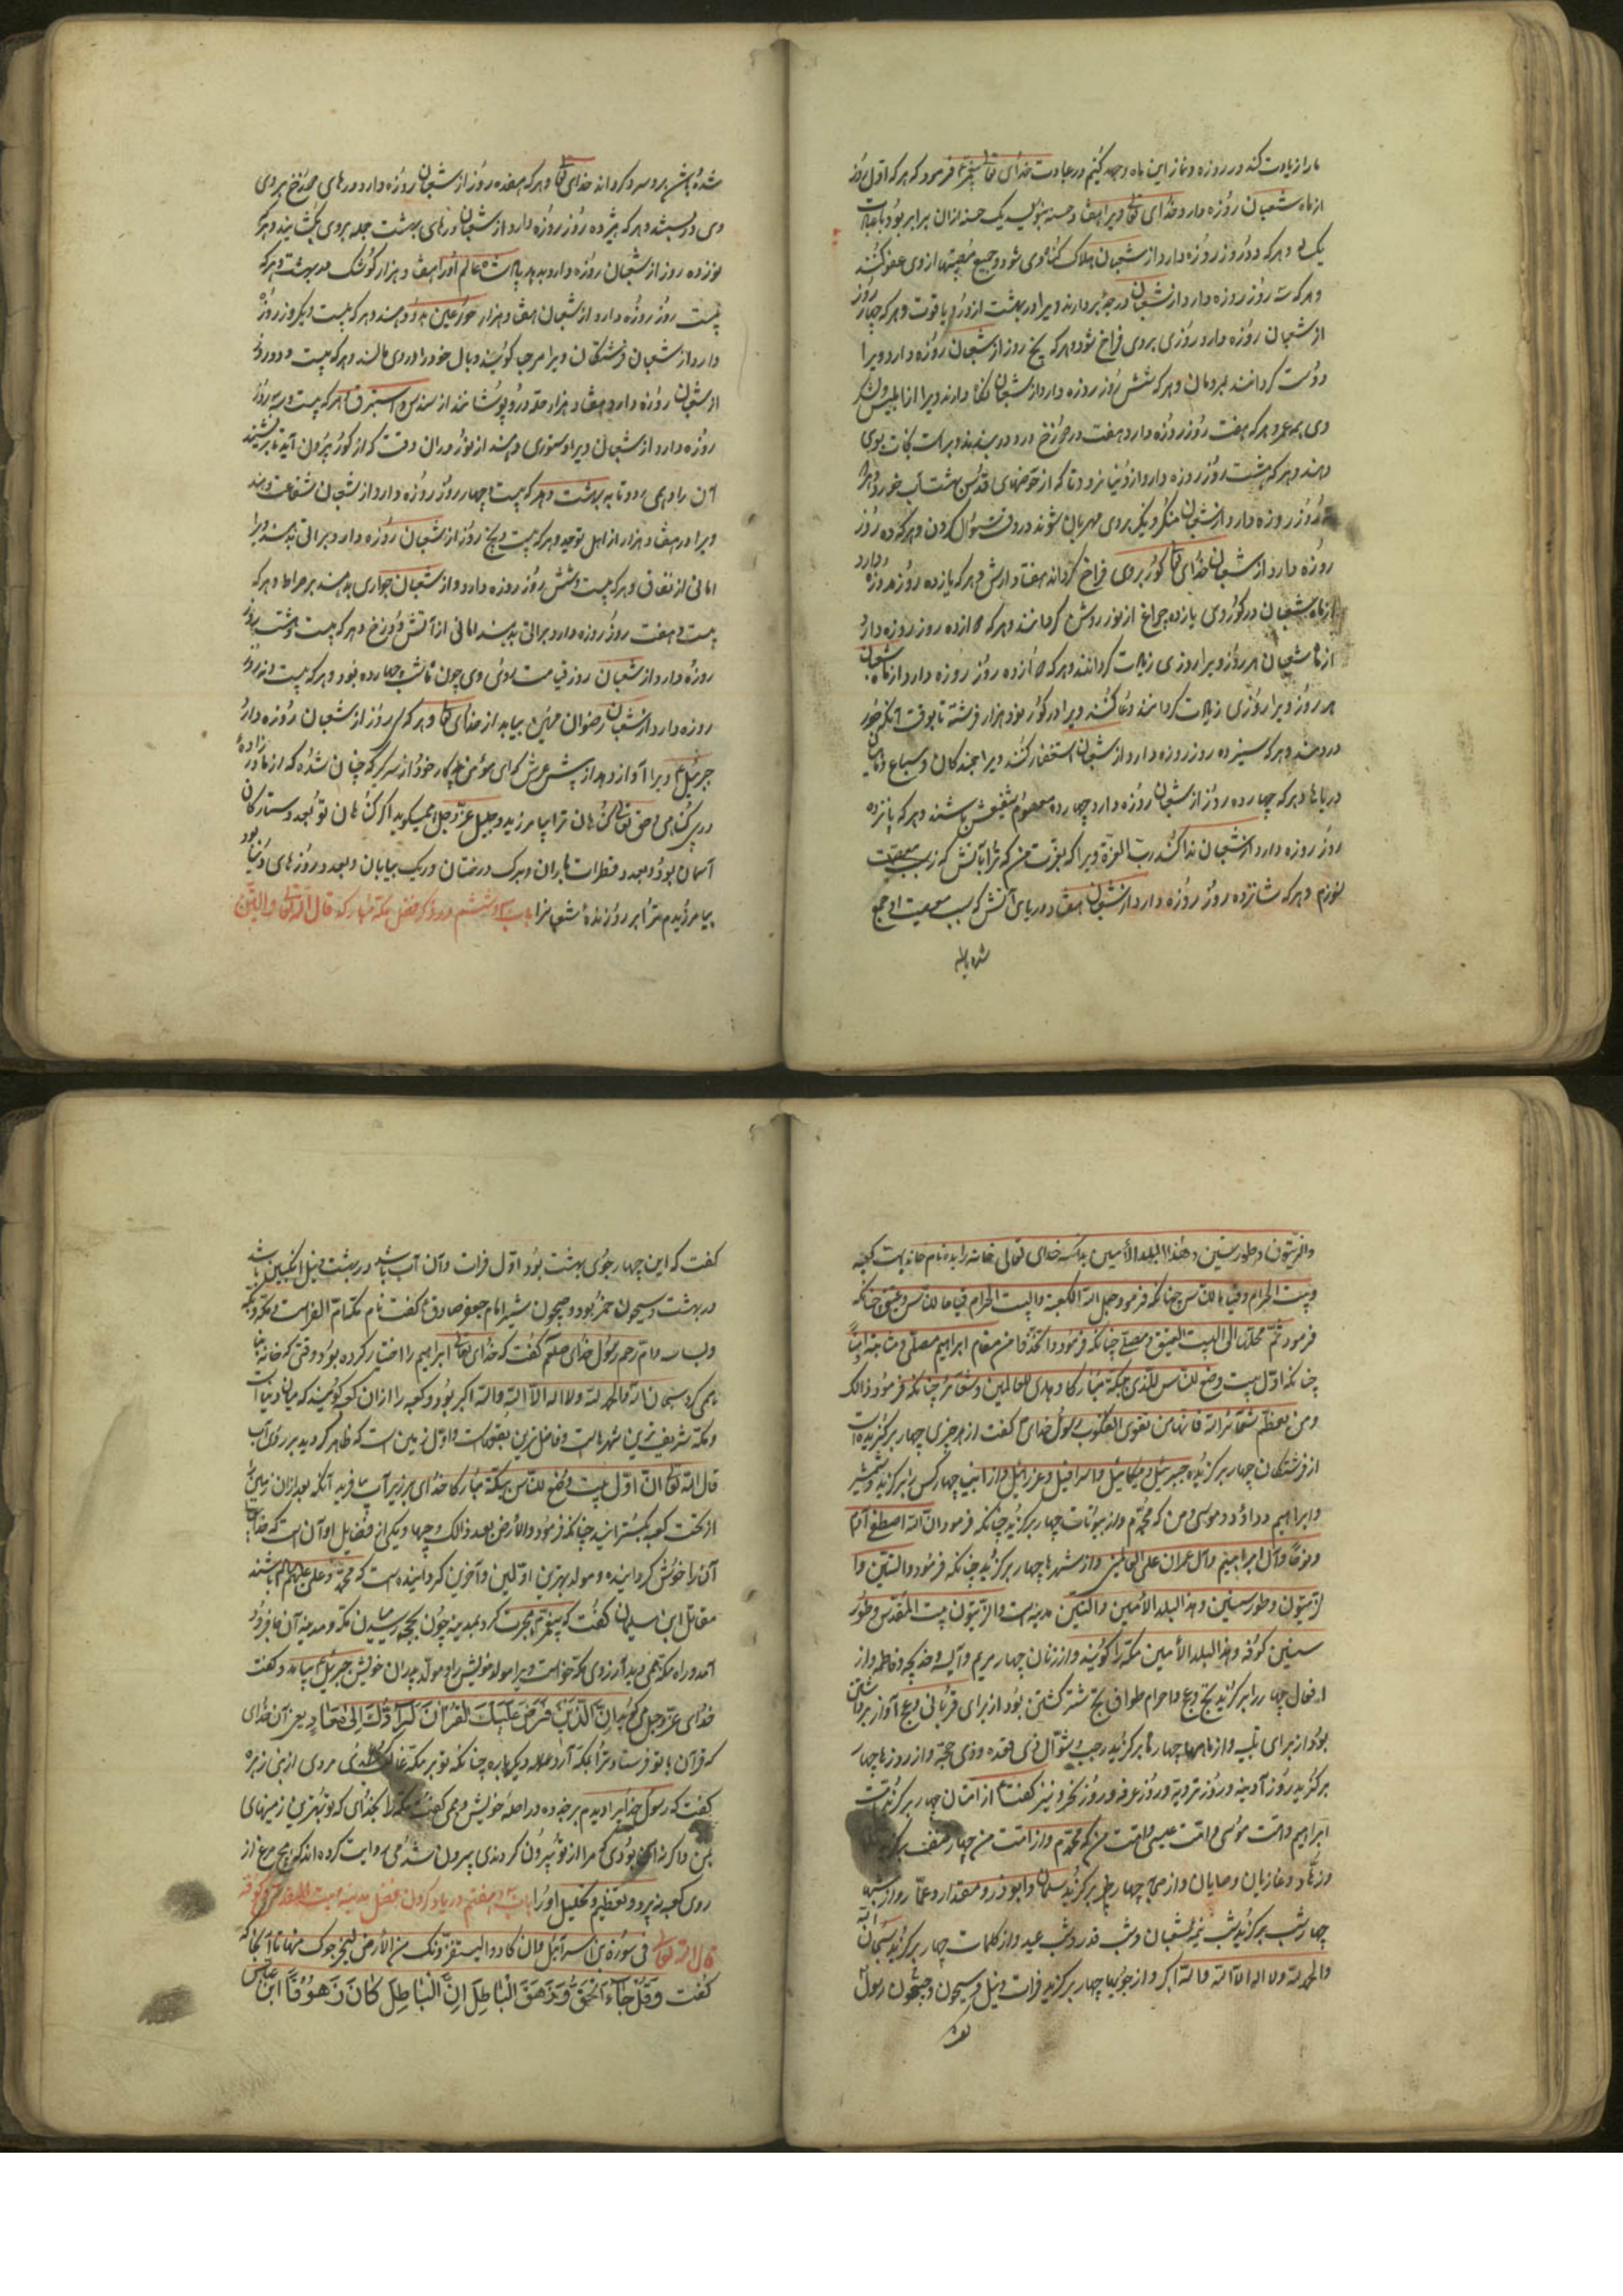 ما را زیادت کند در روزه و نماز این ماه و جهد کنیم در عبادت خدای تعا پیغمبر ع فرمود که هر که اول روز
از ماه شعبان روزه دارد خدای تعا ویرا هفتاد حسنه بنویسد یک حسنه ازان برابر بود با عبادت
یک و هر که دو روز روزه دارد از شعبان هلاک کننده وی شود و جمیع معصیتها از وی عفو کنند
و هر که سه روز روزه دارد از شعبان درجه بردارند ویرا در بهشت از در و یاقوت و هر که چهار روز
از شعبان روزه دارد روزی بر وی فراخ شود و هر که پنج روز از شعبان روزه دارد ویرا
دوست گردانند بمردمان و هر که شش روز روزه دارد از شعبان نگاه دارند ویرا از ابلیس و لشکر
وی همه عمر و هر که هفت روز روزه دارد هفت در دوزخ در بندند و برات نجات بوی
دهند و هر که هشت روز روزه دارد از دنیا نرود تا که از حوضهای قدس بهشت آب خورد و هر که
نه روز روزه دارد از شعبان منکر و نکیر بروی مهربان شوند در وقت سؤال کردن و هر که ده روز
روزه دارد از شعبان خدای تعا گور بروی فراخ گرداند هفتاد ارش و هر که یازده روز روزه دارد
از ماه شعبان در گور وی یازده چراغ از نور روشن گردانند و هر که دوازده روز روزه دارد
از ماه شعبان هر روز ویرا روزی زیادت گردانند و هر که دوازده روز روزه دارد از ماه شعبان
هر روز ویرا روزی زیادت گردانند و کنند ویرا در گور نود هزار فرشته تا بوقت آنکه صور
دردمند و هر که سیزده روز روزه دارد از شعبان استغفار کنند ویرا جنبندگان و سباع و ماهیان
دریاها و هر که چهارده روز از شعبان روزه دارد چهارده معصوم شفیعش باشند و هر که پانزده
روز روزه دارد از شعبان ندا کند رب العزة ویرا که بعزت من که ترا بآتش که
نسوزم و هر که شانزده روز روزه دارد از شعبان هفتاد دریای آتش که بسبب معصیت او جمع
شده باشد
شده باشد بر وی سرد گرداند خدای تعا و هر که هفده روز از شعبان روزه دارد درهای دوزخ بروی
وی دربسته شود و هر که هژده روز روزه دارد از شعبان درهای بهشت جمله بروی بگشایند و هر که
نوزده روز از شعبان روزه دارد بدهد پادشاه عالم او را هفتاد هزار کوشک در بهشت و هر که
بیست روز روزه دارد از شعبان هفتاد هزار حور عین بدو دهند و هر که بیست و یک روز روزه
دارد از شعبان فرشتگان ویرا مرحبا گویند و بال خود را در وی مالند و هر که بیست و دو روز
از شعبان روزه دارد هفتاد هزار حله درو پوشانند از سندس و استبرق و هر که بیست و سه روز
روزه دارد از شعبان ویرا ستوری دهند از نور دران وقت که از گور بیرون آید تا بر نشیند
آن را و همی رود تا به بهشت و هر که بیست و چهار روز روزه دارد از شعبان شفاعت دهند
ویرا در هفتاد هزار از اهل توحید و هر که بیست و پنج روز از شعبان روزه دارد براتی بدهند ویرا
امانی از نفاق و هر که بیست و شش روز روزه دارد از شعبان جوازی بدهند بر صراط و هر که
بیست و هفت روز روزه دارد براتی بدهند امانی از آتش دوزخ و هر که بیست و هشت روز
روزه دارد از شعبان روز قیامت روی وی چون ماه شب چهارده بود و هر که بیست و نه روز
روزه دارد از شعبان رضوان مهین بیابد از خدای تعا و هر که سی روز از شعبان روزه دارد
جبرئیل ع ویرا آواز دهد از پیش عرش که ای مؤمن کار خود از سر گیر که چنان شده که از مادر زاده
و بی گناهی و حق تعالی گناهان ترا بیامرزید و جلیل عز و جل میگوید اگر گناهان تو بعدد ستارگان
آسمان بود و بعدد قطرات باران و برگ درختان و ریگ بیابان و بعدد روزهای دنیا بود
بیامرزیدم ترا بر روزه ماه شعبان را باب سی و ششم در ذکر فضل مکه مبارکه قال الله تعالی و التین
والزیتون و طور سینین و هذا البلد الامین بدانکه خدای تعالی خانه را به ده نام خواند بیت کعبه
و بیت الحرام و قیاما للناس چنانکه فرمود جعل الله الکعبة والبیت الحرام قیاما للناس و عتیق چنانکه
فرمود ثم محلها الی البیت العتیق و مصلی چنانکه فرمود واتخذوا من مقام ابراهیم مصلی و مثابة
چنانکه اول بیت وضع للناس للذی ببکة مبارکا و هدی للعالمین و شعائر چنانکه فرمود ذالک
ومن یعظم شعائر الله فانها من تقوی القلوب رسول خدای گفت از هر چیزی چهار برگزیده است
از فرشتگان چهار برگزیده جبرئیل و میکائیل و اسرافیل و عزرائیل و از انبیا چهار کس برگزید و شمشیر
و ابراهیم و داؤد و موسی و من که محمدم و از بیوتات چهار برگزید چنانکه فرمود ان الله اصطفی آدم
و نوحا و آل ابراهیم و آل عمران علی العالمین و از شهرها چهار برگزید چنانکه فرمود و التین وا
لزیتون و طور سینین و هذا البلد الامین و التین مدینه است و الزیتون بیت المقدس و طور
سینین کوفه و هذا البلد الامین مکه را گویند و از زنان چهار مریم و آسیه و خدیجه و فاطمه و از
افعال چهار را برگزید ثج و عج و احرام طواف ثج شتر کشتن بود از برای قربانی و عج آواز برداشتن
بود از برای تلبیه و از ماهها چهار ماه برگزید رجب و شوال و ذی قعده و ذی حجه و از روزها چهار
برگزید روز آدینه و روز ترویه و روز عرفه و روز نحر و نیز گفت ع از امتان چهار برگزید امت
ابراهیم و امت موسی و امت عیسی و امت من که محمدم و از امت من چهار صنف برگزید
و زهاد و غازیان و صایمان و از صحابه چهار یار برگزید سلمان و ابوذر و مقداد و عمار و از شبها
چهار شب برگزید شب نیمه شعبان و شب قدر و شب عید و از کلمات چهار برگزید سبحان الله
والحمد لله ولا اله الا الله والله اکبر و از جویها چهار برگزید فرات و نیل و سیحون و جیحون رسول
گفت که این چهار جوی بهشت بود اول فرات و آن آب باشد در بهشت و نیل انگبین باشد
در بهشت و سیحون خمر بود و جیحون شیر امام جعفر صادق ع گفت نام مکه ام القراست و مکه و بکه
و بساسه و ام رحم رسول خدای صلعم گفت که خدای تعالی ابراهیم را اختیار کرده بود وقتی که خانه بنا
همی کرد سبحان الله والحمد لله ولا اله الا الله والله اکبر بود و کعبه را ازان کعبه گویند که میان دنیا است
و مکه شریف ترین شهرهاست و فاضل ترین بقعهاست و اول زمین است که ظاهر گردید بر روی آب
قال الله تعا ان اول بیت وضع للناس ببکة مبارکا خدای بر زبر آب آفرید آنکه بعد ازان زمین را
از تحت کعبه بگسترانید چنانکه فرمود والارض بعد ذالک دحیها و یکی از فضایل او آن است که خدای
آن را خوش گردانیده و مولد بهترین اولین و آخرین گردانیده است که محمد و علی علیهم السلم باشند
مقاتل ابن سلیمان گفت که پیغمبر ع هجرت کرد بمدینه چون بجحفه رسید میان مکه و مدینه آن جا فرود
آمد و راه مکه همی دید آرزوی مکه خواست ویرا مولد خویش را و مولد پدران خویش جبرئیل ع بیامد و گفت
خدای عز و جل می گوید اِنَّ الَّذی فَرَضَ عَلَیْكَ الْقُرْاٰنَ لَرَادُّكَ اِلیٰ مَعَادٍ یعنی آن خدای
که قرآن با تو فرستاد ترا بمکه آرد دیگرباره چنانکه تو بر مکه غالب شدی مردی از بنی زهره
گفت که رسول خدایرا دیدم بر راحلهٔ خویش و می گفت مکه را بخدای که تو بهترین زمینهای
بمن و اگر نه آن بودی که مرا از تو بیرون کردندی بیرون نشدمی روایت کرده اند که
روی کعبه بپرد و تعظیم و تجلیل او را باب سی و هفتم در یاد کردن فضل مدینه و بیت المقدس و کوفه
قال الله تعالی فی سورة بنی اسرآئیل وان کادوا لیستفزونک من الارض لیخرجوک منها تا آنجا که
گفت وَقُلْ جَآءَ الْحَقُّ وَزَهَقَ الْبَاطِلُ اِنَّ الْبَاطِلَ كَانَ زَهُوْقًا ابن عباس